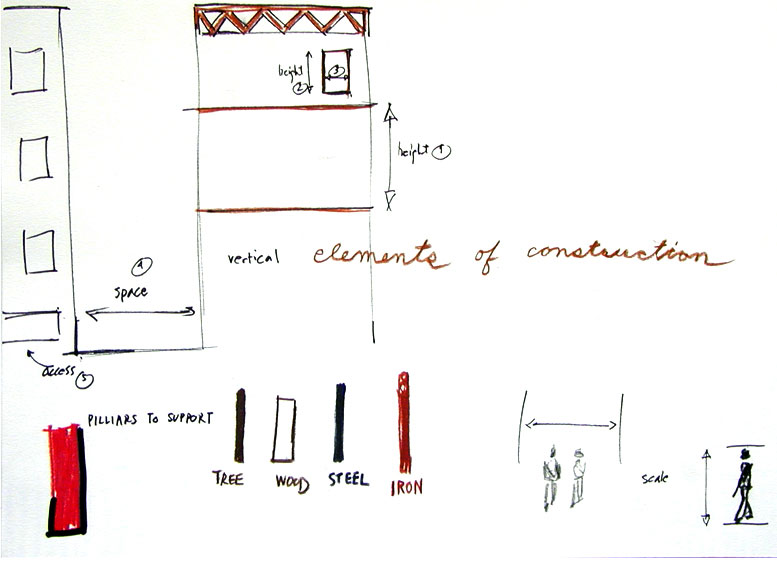 height
② ③
height ①
vertical elements of construction
④
space
access ⑤
PILLIARS TO SUPPORT
TREE WOOD STEEL IRON
scale